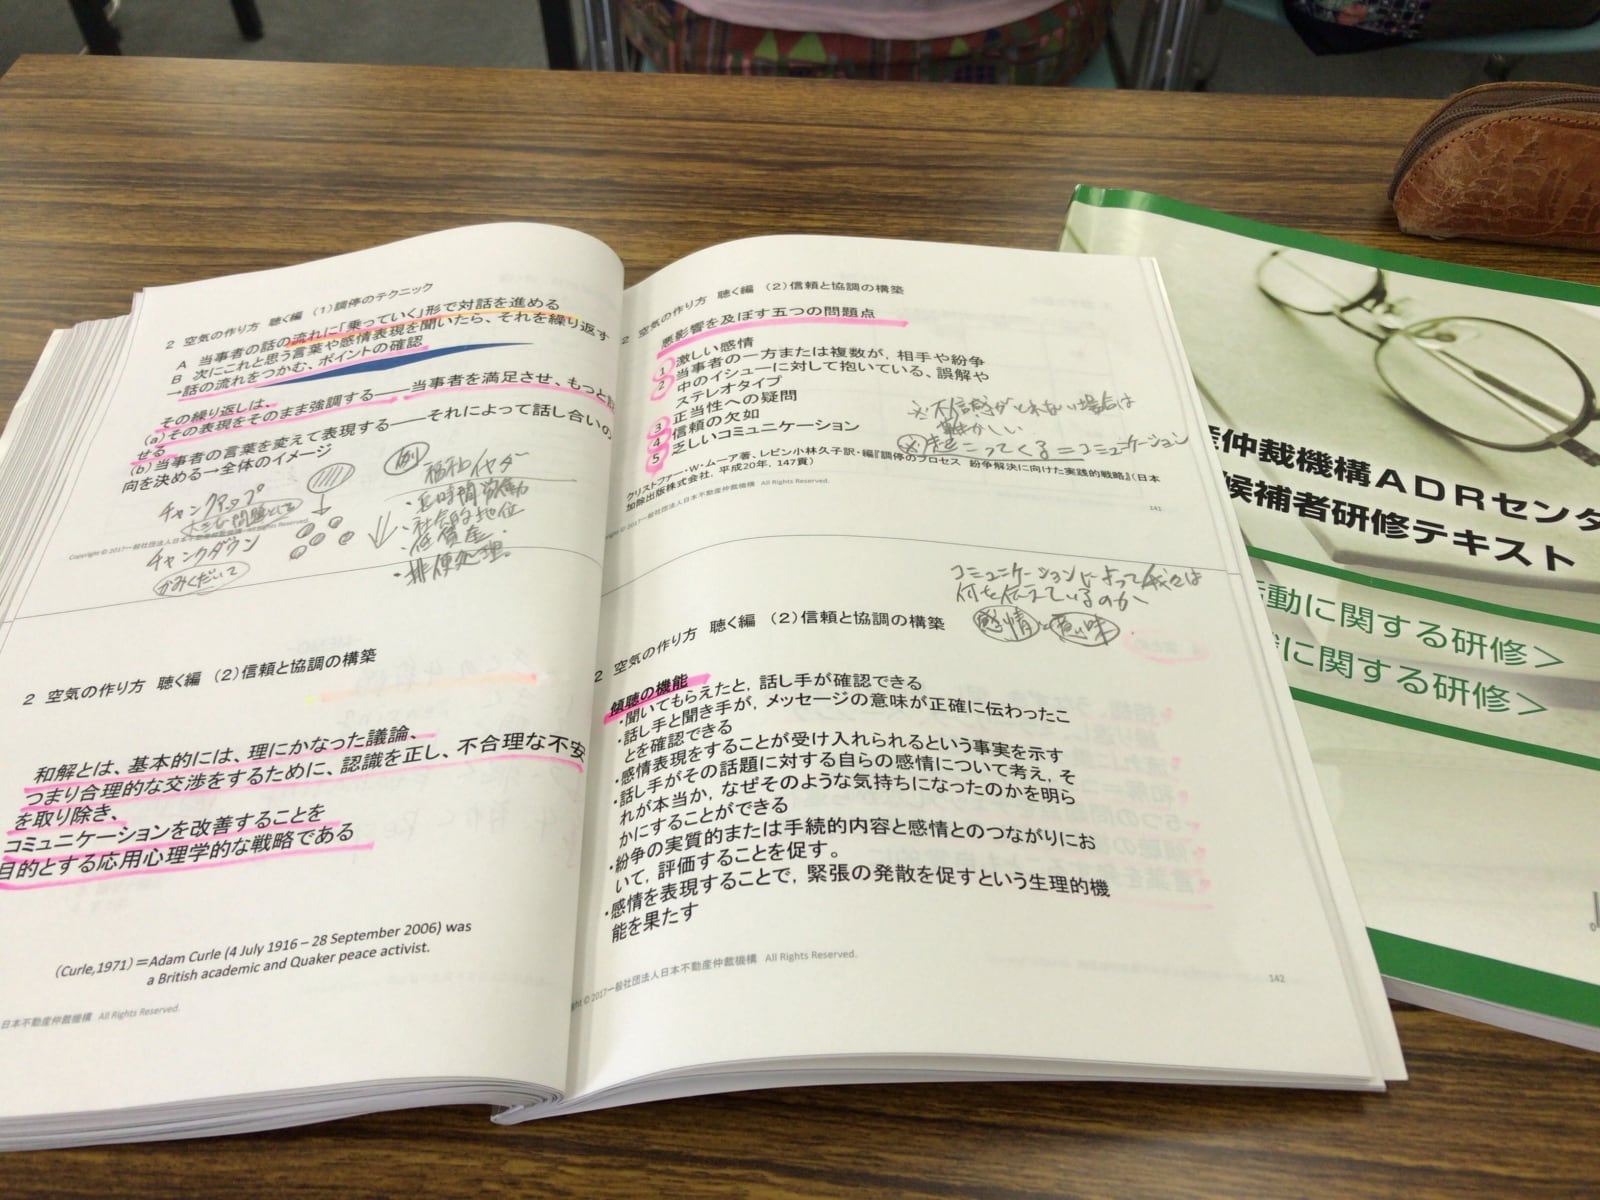 2 空気の作り方 聴く編 (1)調停のテクニック
A 当事者の話の流れに「乗っていく」形で対話を進める
B 次にこれと思う言葉や感情表現を聞いたら、それを繰り返す
→話の流れをつかむ、ポイントの確認
その繰り返しは、
(a)その表現をそのまま強調する――当事者を満足させ、もっと
せる
(b)当事者の言葉を変えて表現する――それによって話し合いの
向を決める→全体のイメージ
チャンクアップ
大きな問題とする
チャンクダウン
かみくだいて
例
・長時間労働
・社会的地位
・低賃金
・排便処理。
Copyright © 2017一般社団法人日本不動産仲裁機構 All Rights Reserved.
2 空気の作り方 聴く編 (2)信頼と協調の構築
和解とは、基本的には、理にかなった議論、
つまり合理的な交渉をするために、認識を正し、不合理な不安
を取り除き、
コミュニケーションを改善することを
目的とする応用心理学的な戦略である
(Curle,1971)=Adam Curle (4 July 1916 – 28 September 2006) was
a British academic and Quaker peace activist.
日本不動産仲裁機構 All Rights Reserved.
2 空気の作り方 聴く編 (2)信頼と協調の構築
悪影響を及ぼす五つの問題点
1 激しい感情
2 当事者の一方または複数が，相手や紛争
中のイシューに対して抱いている、誤解や
ステレオタイプ
3 正当性への疑問
4 信頼の欠如
5 乏しいコミュニケーション
※不信感がとれない場合は
難かしい
=コミュニケーション
クリストファー・W・ムーア著、レビン小林久子訳・編『調停のプロセス 紛争解決に向けた実践的戦略』(日本
加除出版株式会社，平成20年，147頁)
一般社団法人日本不動産仲裁機構 All Rights Reserved.
141
コミュニケーションによって我々は
何を伝えているのか
感情と意味
2 空気の作り方 聴く編 (2)信頼と協調の構築
傾聴の機能
・聞いてもらえたと，話し手が確認できる
・話し手と聞き手が，メッセージの意味が正確に伝わったこ
とを確認できる
・感情表現をすることが受け入れられるという事実を示す
・話し手がその話題に対する自らの感情について考え，そ
れが本当か，なぜそのような気持ちになったのかを明ら
かにすることができる
・紛争の実質的または手続的内容と感情とのつながりにお
いて，評価することを促す。
・感情を表現することで，緊張の発散を促すという生理的機
能を果たす
© 2017一般社団法人日本不動産仲裁機構 All Rights Reserved.
142
仲裁機構ADRセンタ
候補者研修テキスト
動に関する研修＞
に関する研修＞